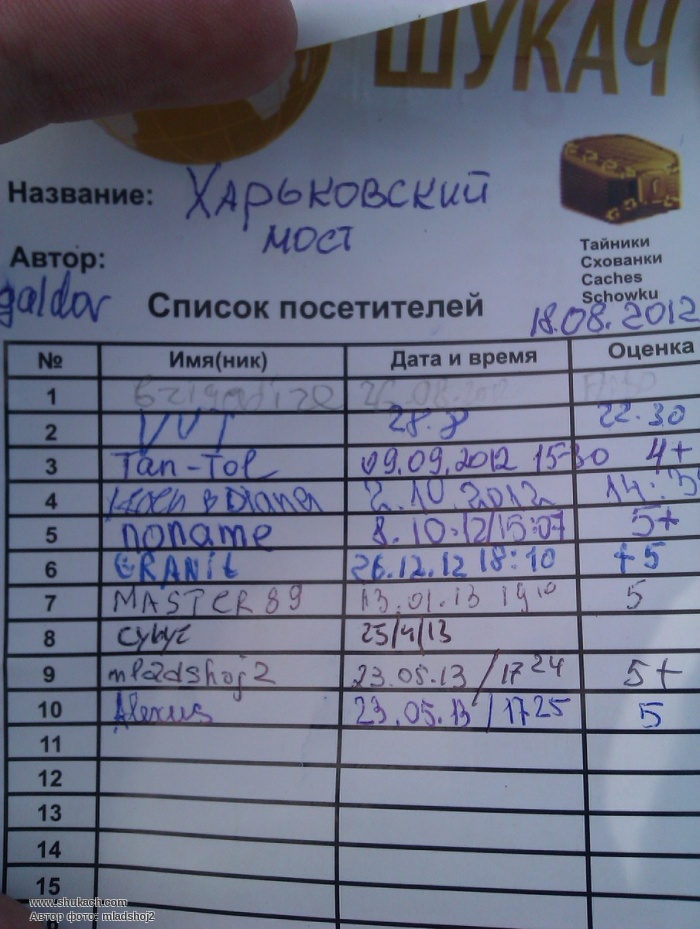 ШУКАЧ
Название: Харьковский
мост
Тайники
Схованки
Caches
Schowku
Автор:
galdor
Список посетителей
18.08.2012
№ Имя(ник) Дата и время Оценка
1 26.08.
2 VVT 28.8 22.30
3 Tan-Tol 09.09.2012 15-30 4+
4 2.10.2012 14:
5 noname 8.10.12/15:07 5+
6 GRANit 26.12.12 18:10 +5
7 MASTER89 13.01.13 19 10 5
8 25/4/13
9 mladshoj2 23.05.13 / 17 24 5+
10 Alexus 23.05.13 / 17 25 5
11
12
13
14
15
www.shukach.com
Автор фото: mladshoj2